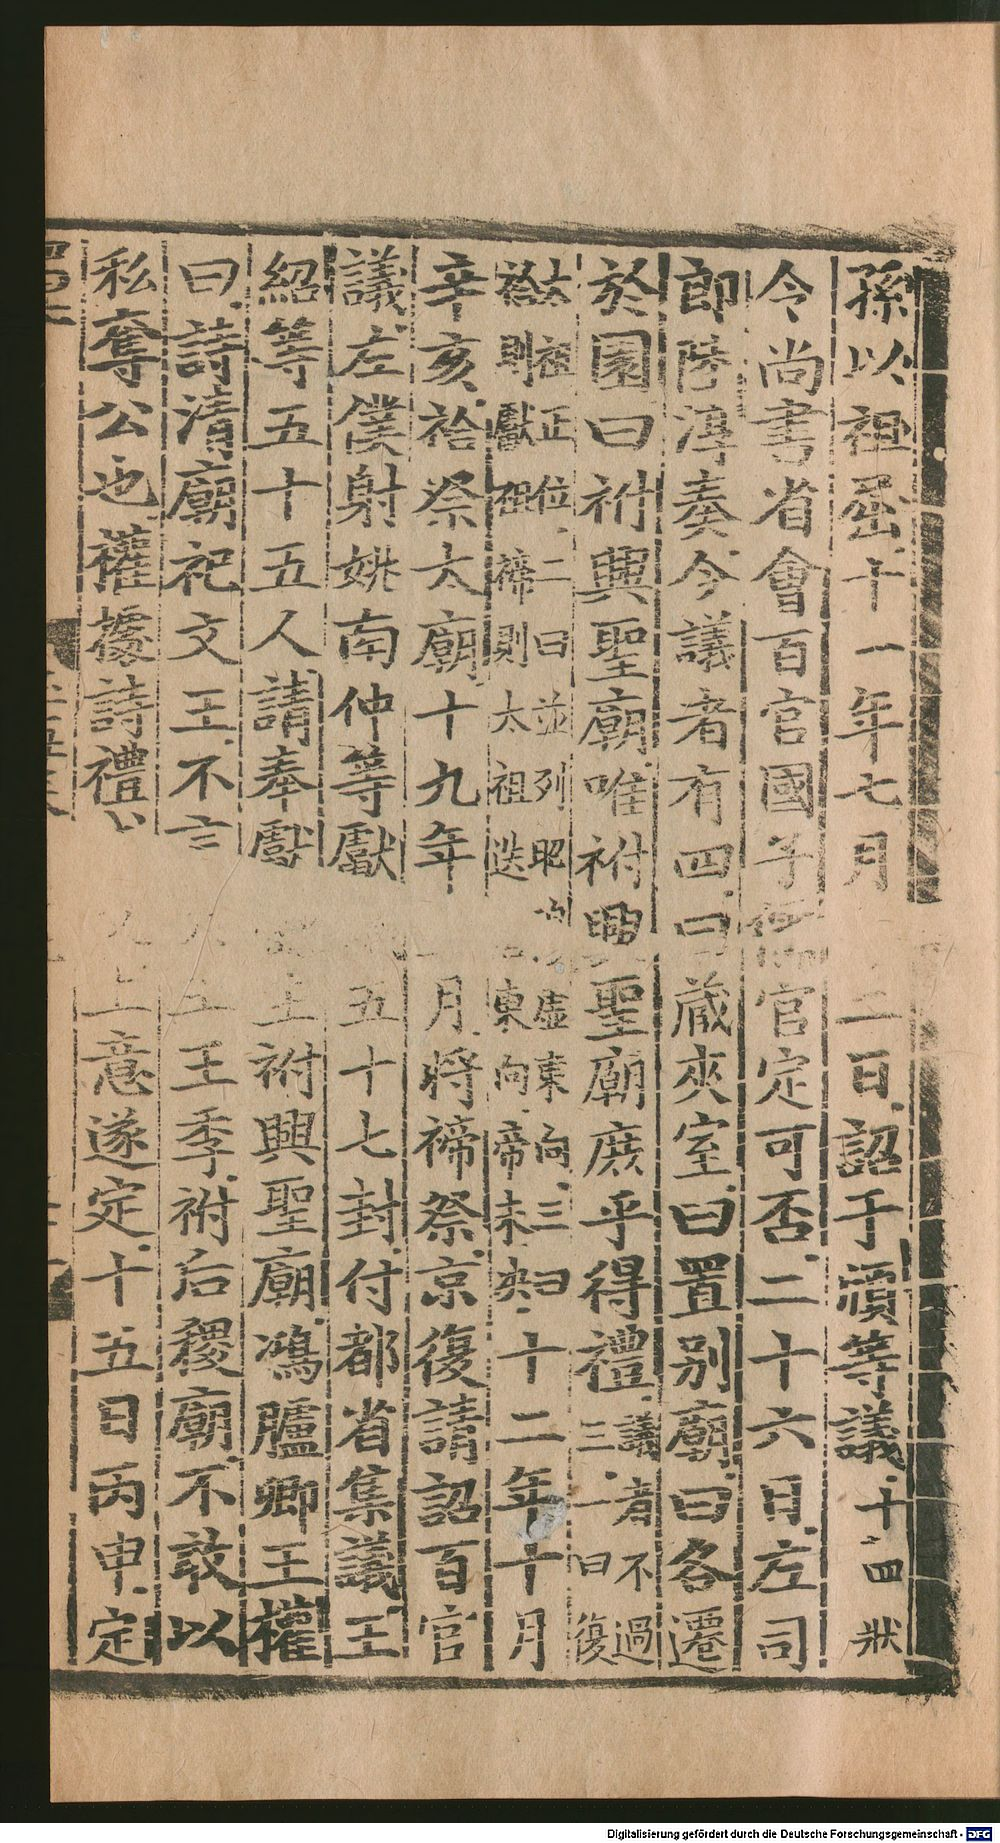 孫以祖屈十一年七月二日詔于頎等議十四狀
令尚書省會百官國子儒官定可否二十六日左司
郎陸淳奏今議者有四曰藏夾室曰置別廟曰各遷
於園曰祔興聖廟唯祔興聖廟庶乎得禮議者不過
三一曰復
太祖正位二曰並列昭穆虛東向三曰
祫則獻祖禘則太祖迭東向帝未決十二年十月
辛亥祫祭太廟十九年月將禘祭京復請詔百官
議左僕射姚南仲等獻五十七封付都省集議王
紹等五十五人請奉獻主祔興聖廟鴻臚卿王權
曰詩清廟祀文王不言王季祔后稷廟不敢以
私奪公也權據詩禮上意遂定十五日丙申定
Digitalisierung gefördert durch die Deutsche Forschungsgemeinschaft - DFG